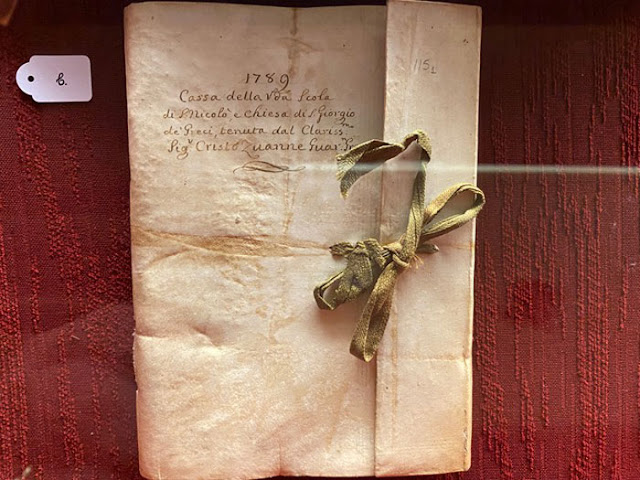 b.
1151
1789
Cassa della Vda Scola
di S Nicolò e Chiesa di S Giorgio
de Greci, tenuta dal Clariss
Sigr Cristo Zuanne Guar